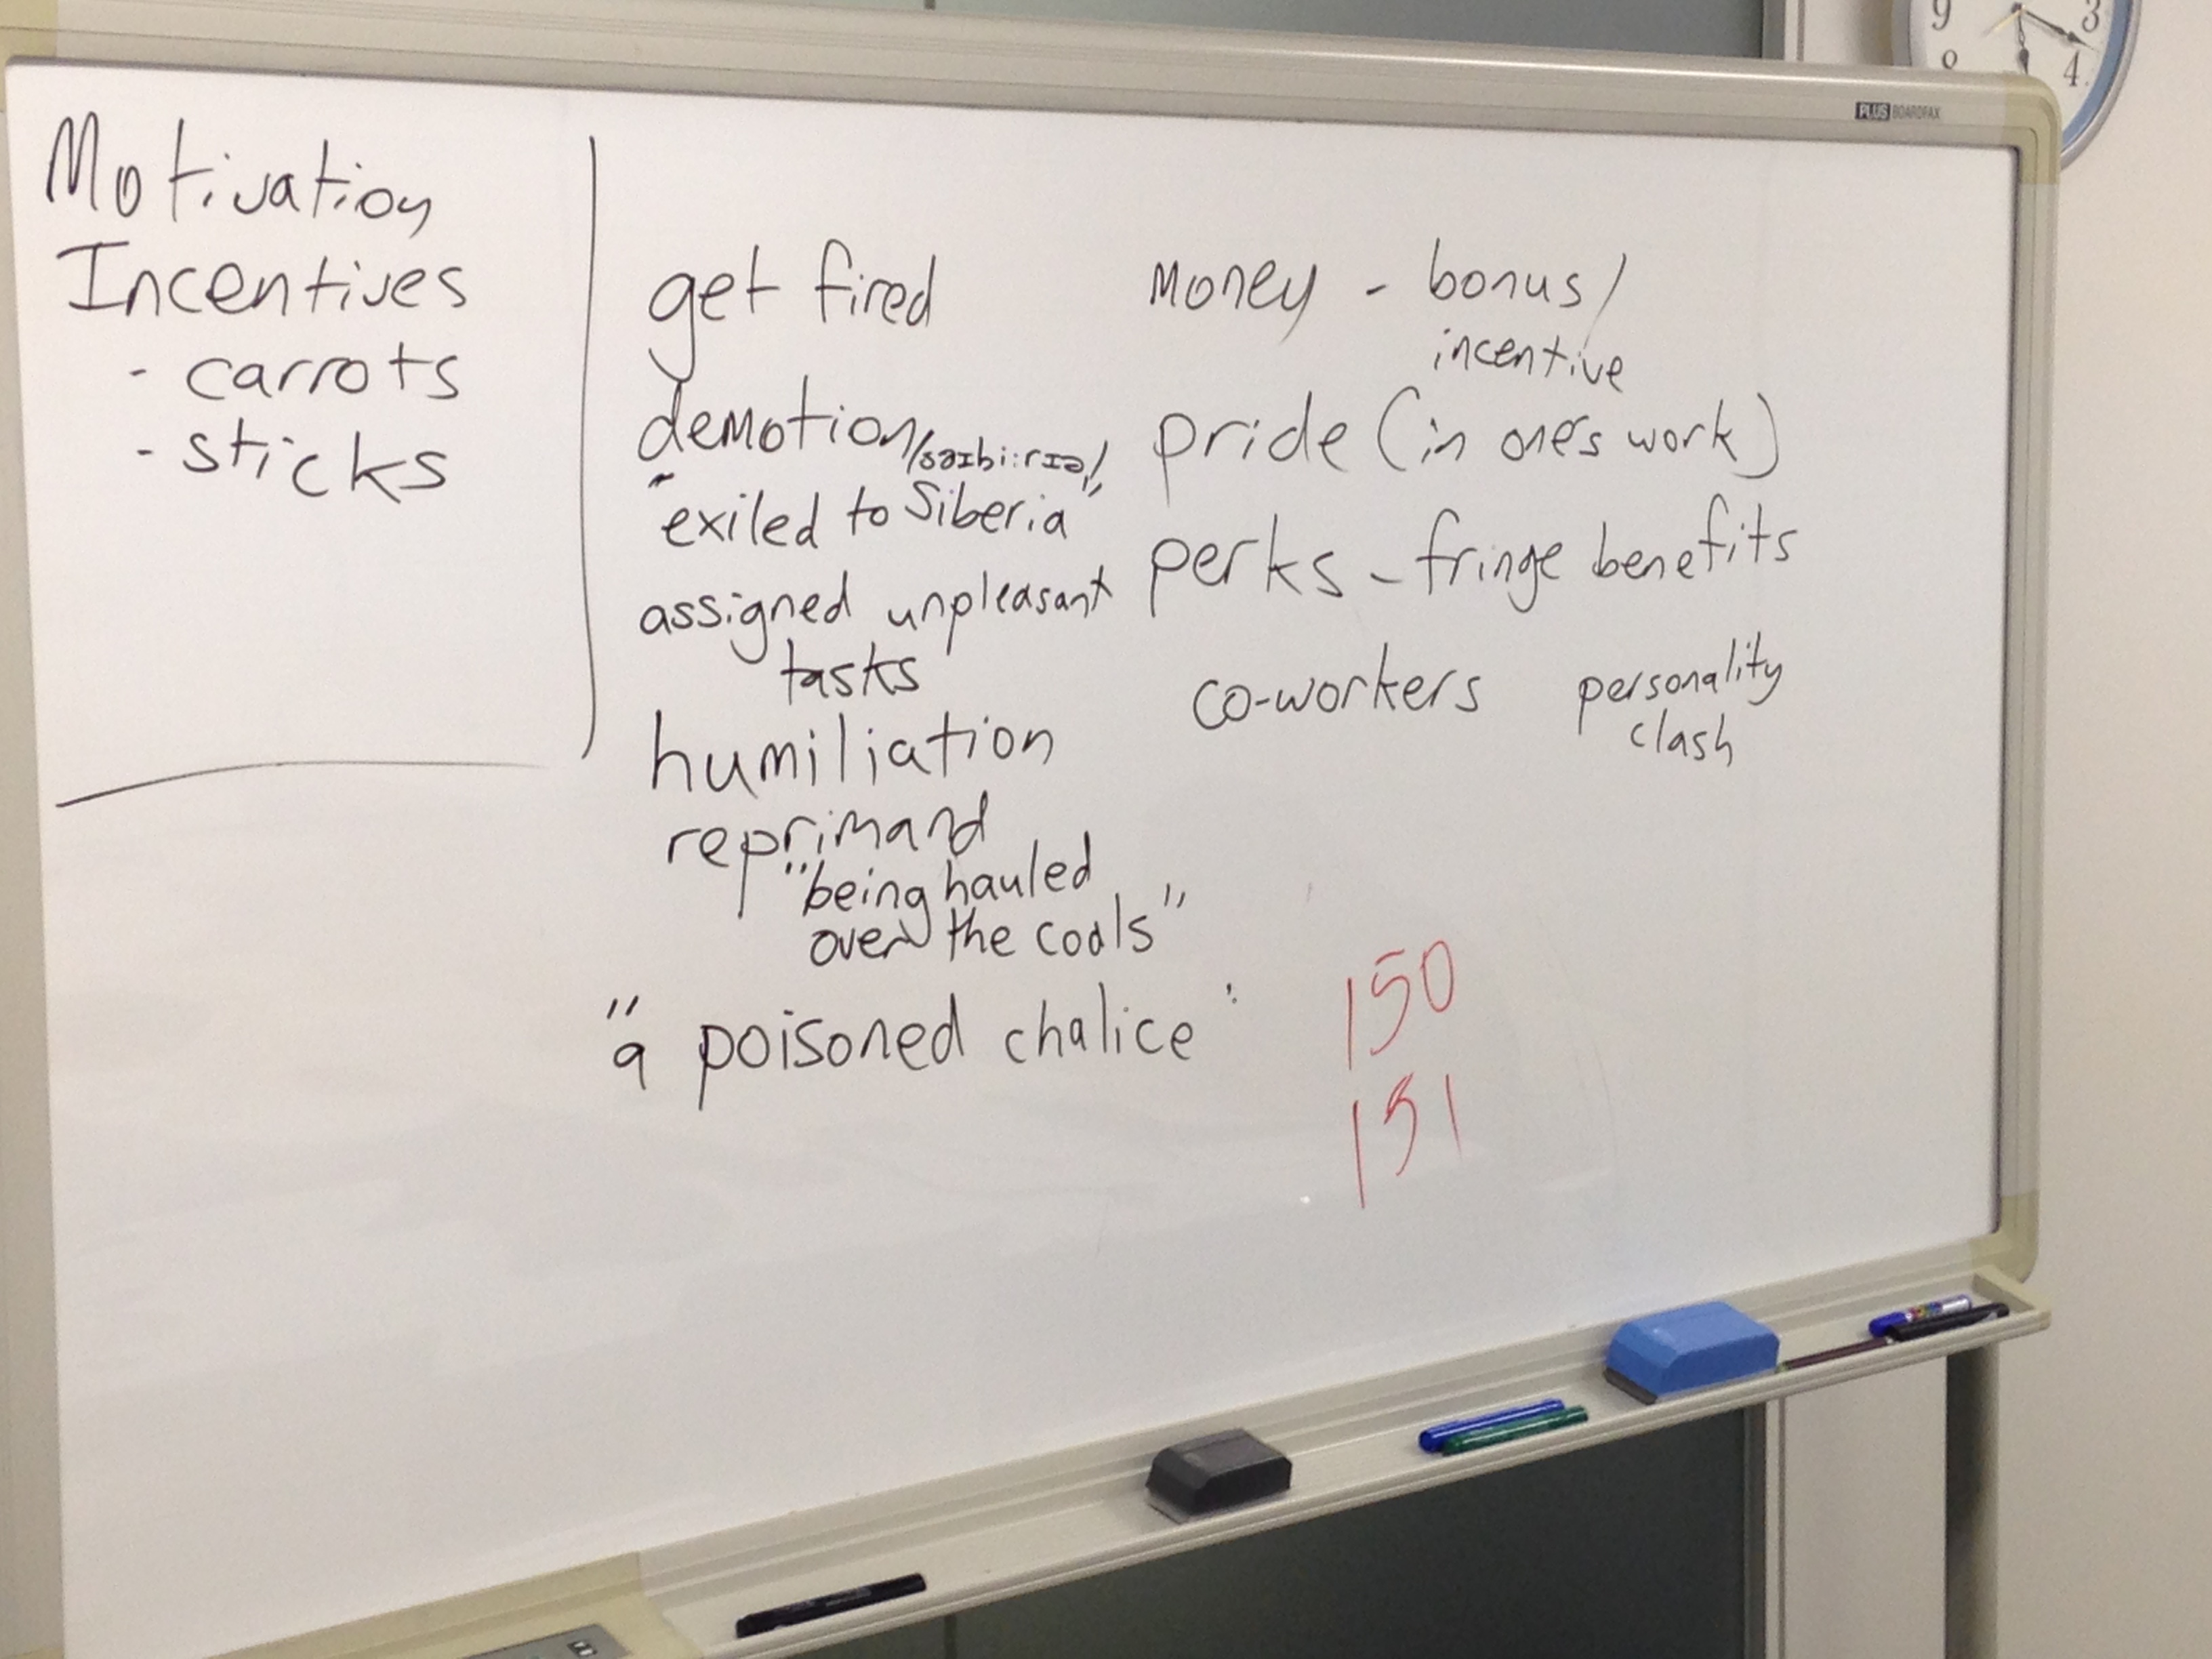 Motivation
Incentives
- carrots
- sticks
get fired
demotion /saɪbi:rɪə/
"exiled to Siberia"
assigned unpleasant
tasks
humiliation
reprimand
"being hauled
over the coals"
"a poisoned chalice"
money - bonus/
incentive
pride (in one's work)
perks - fringe benefits
co-workers personality
clash
150
151
PLUS BOARDFAX
9 3
8 4